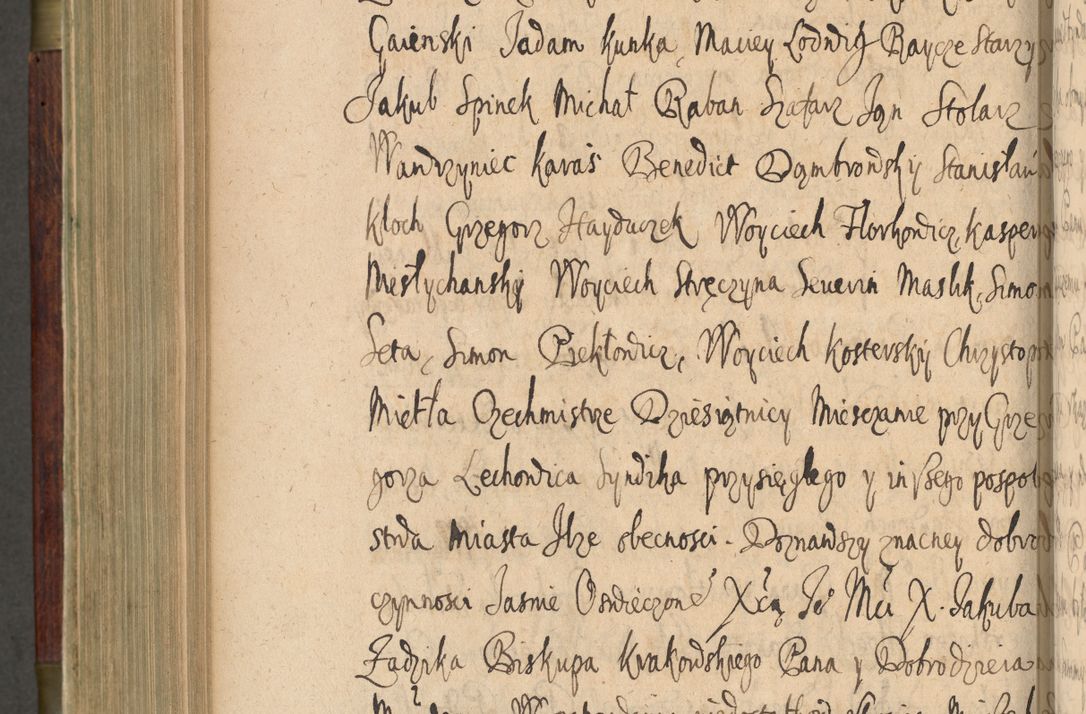 Gaienski Jadam Kunka, Maciey Lodwig Raycze Starzy
Jakub Spinek Michał Raban Szafarz Jan Stolarz
Wawrzyniec Karaś Benedict Dąmbrowsky Stanisław
Kłoch Grzegorz Hayduczek Woyciech Florkowicz, Kasper
Niesłychansky Woyciech Stręczyna Seuerin Maslik, Simon
Seta, Simon Piekłowicz, Woyciech Kostersky Chrystop
Miekła Czechmistrze Dziesiątnicy Miesczanie przy Grze
gorza Lechowica Syndika przysięgłego y inszego pospol
stwa Miasta Ilze obecnosci. Doznawszy znacney dobro
czynnosci Jasnie Oswieczone° Xcą Je° Mci X. Jakuba
Zadzika Biskupa Krakowskiego Pana y Dobrodzieia